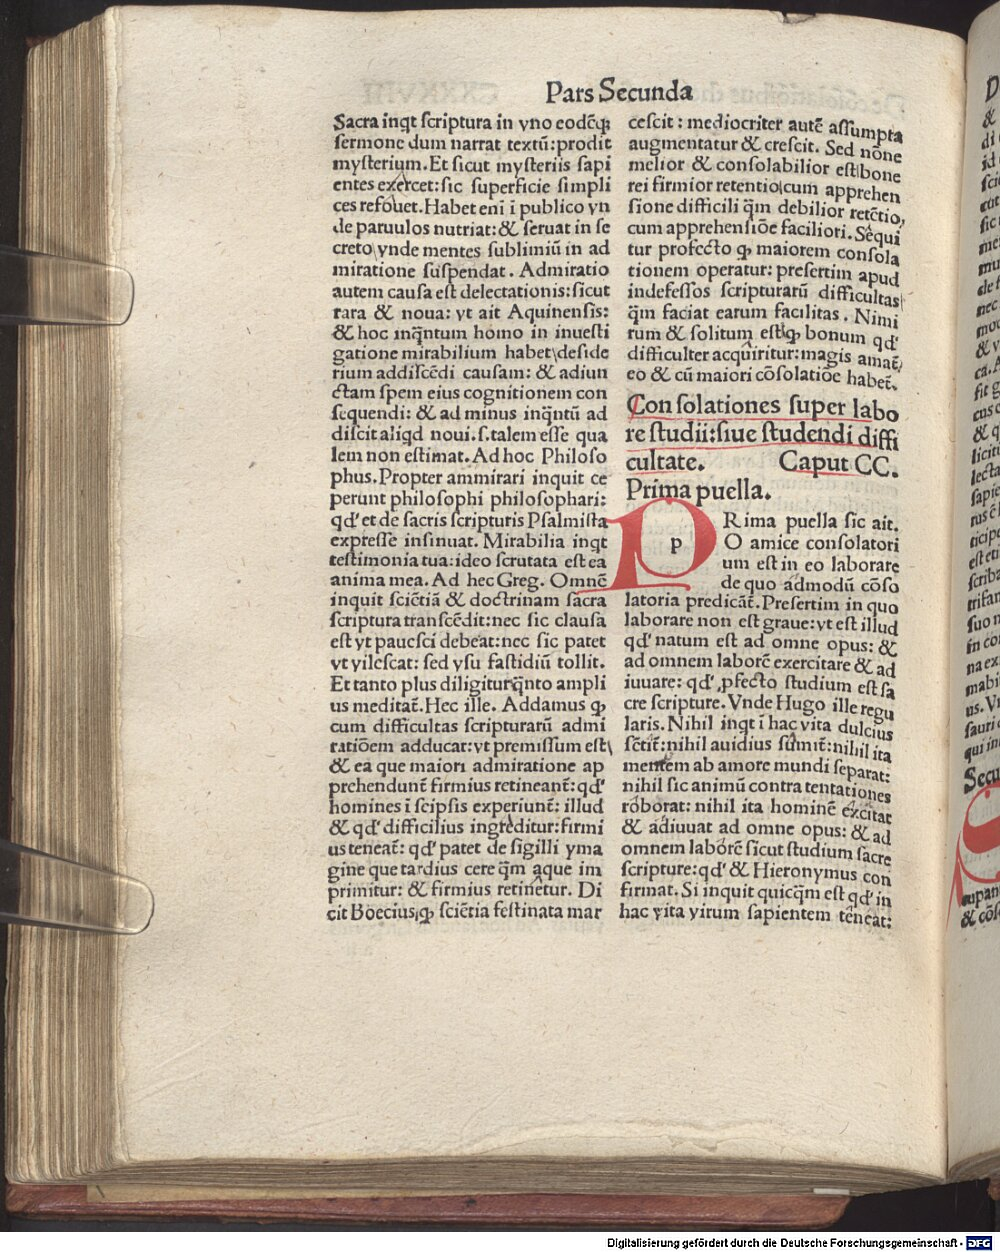 Pars Secunda
Sacra inqt ſcriptura in vno eodēqꝫ
ſermone dum narrat textū:prodit
myſterium.Et ſicut myſteriis ſapi
entes exercet:ſic ſuperficie ſimpli
ces refouet.Habet eni ī publico vn
de paruulos nutriat:& ſeruat in ſe
creto vnde mentes ſublimiū in ad
miratione ſuſpendat. Admiratio
autem cauſa eſt delectationis:ſicut
rara & noua: vt ait Aquinenſis:
& hoc inq̄ntum homo in inueſti
gatione mirabilium habet deſide
rium addiſcēdi cauſam: & adiun
ctam ſpem eius cognitionem con
ſequendi: & ad minus inq̄ntū ad
diſcit aliqd noui.ſ.talem eſſe qua
lem non eſtimat. Ad hoc Philoſo
phus.Propter ammirari inquit ce
perunt philoſophi philoſophari:
qd' et de ſacris ſcripturis Pſalmiſta
expreſſe inſinuat. Mirabilia inqt
teſtimonia tua:ideo ſcrutata eſt ea
anima mea. Ad hec Greg. Omnē
inquit ſciētiā & doctrinam ſacra
ſcriptura tranſcēdit:nec ſic clauſa
eſt vt paueſci debeat:nec ſic patet
vt vileſcat: ſed vſu faſtidiū tollit.
Et tanto plus diligitur q̄nto ampli
us meditat̄.Hec ille. Addamus ꝙ
cum difficultas ſcripturarū admi
ratiōem adducat:vt premiſſum eſt
& ea que maiori admiratione ap
prehendunt̄ firmius retineant̄:qd'
homines ī ſeipſis experiunt̄: illud
& qd' difficilius ingreditur:firmi
us teneat̄: qd' patet de ſigilli yma
gine que tardius cere q̄m aque im
primitur: & firmius retinetur. Di
cit Boecius ꝙ ſciētia feſtinata mar
ceſcit : mediocriter autē aſſumpta
augmentatur & creſcit. Sed nōne
melior & conſolabilior eſt bone
rei firmior retentio cum apprehen
ſione difficili q̄m debilior retētio,
cum apprehenſiōe faciliori. Sequi
tur profecto ꝙ maiorem conſola
tionem operatur: preſertim apud
indefeſſos ſcripturarū difficultas
q̄m faciat earum facilitas. Nimi
rum & ſolitum eſt ꝙ bonum qd'
difficulter acquiritur:magis amat̄
eo & cū maiori cōſolatiōe habet̄.
Conſolationes ſuper labo
re ſtudii:ſiue ſtudendi diffi
cultate. Caput CC.
Prima puella.
p
PRima puella ſic ait.
O amice conſolatori
um eſt in eo laborare
de quo admodū cōſo
latoria predicāt̄.Preſertim in quo
laborare non eſt graue:vt eſt illud
qd' natum eſt ad omne opus: &
ad omnem laborē exercitare & ad
iuuare: qd' ꝓfecto ſtudium eſt ſa
cre ſcripture. Vnde Hugo ille regu
laris. Nihil inqt ī hac vita dulcius
ſētit̄:nihil auidius ſumit̄:nihil ita
mentem ab amore mundi ſeparat:
nihil ſic animū contra tentationes
roborat: nihil ita hominē excitat
& adiuuat ad omne opus: & ad
omnem laborē ſicut ſtudium ſacre
ſcripture:qd' & Hieronymus con
firmat. Si inquit quicq̄m eſt qd' in
hac vita virum ſapientem teneat:
Digitalisierung gefördert durch die Deutsche Forschungsgemeinschaft - DFG